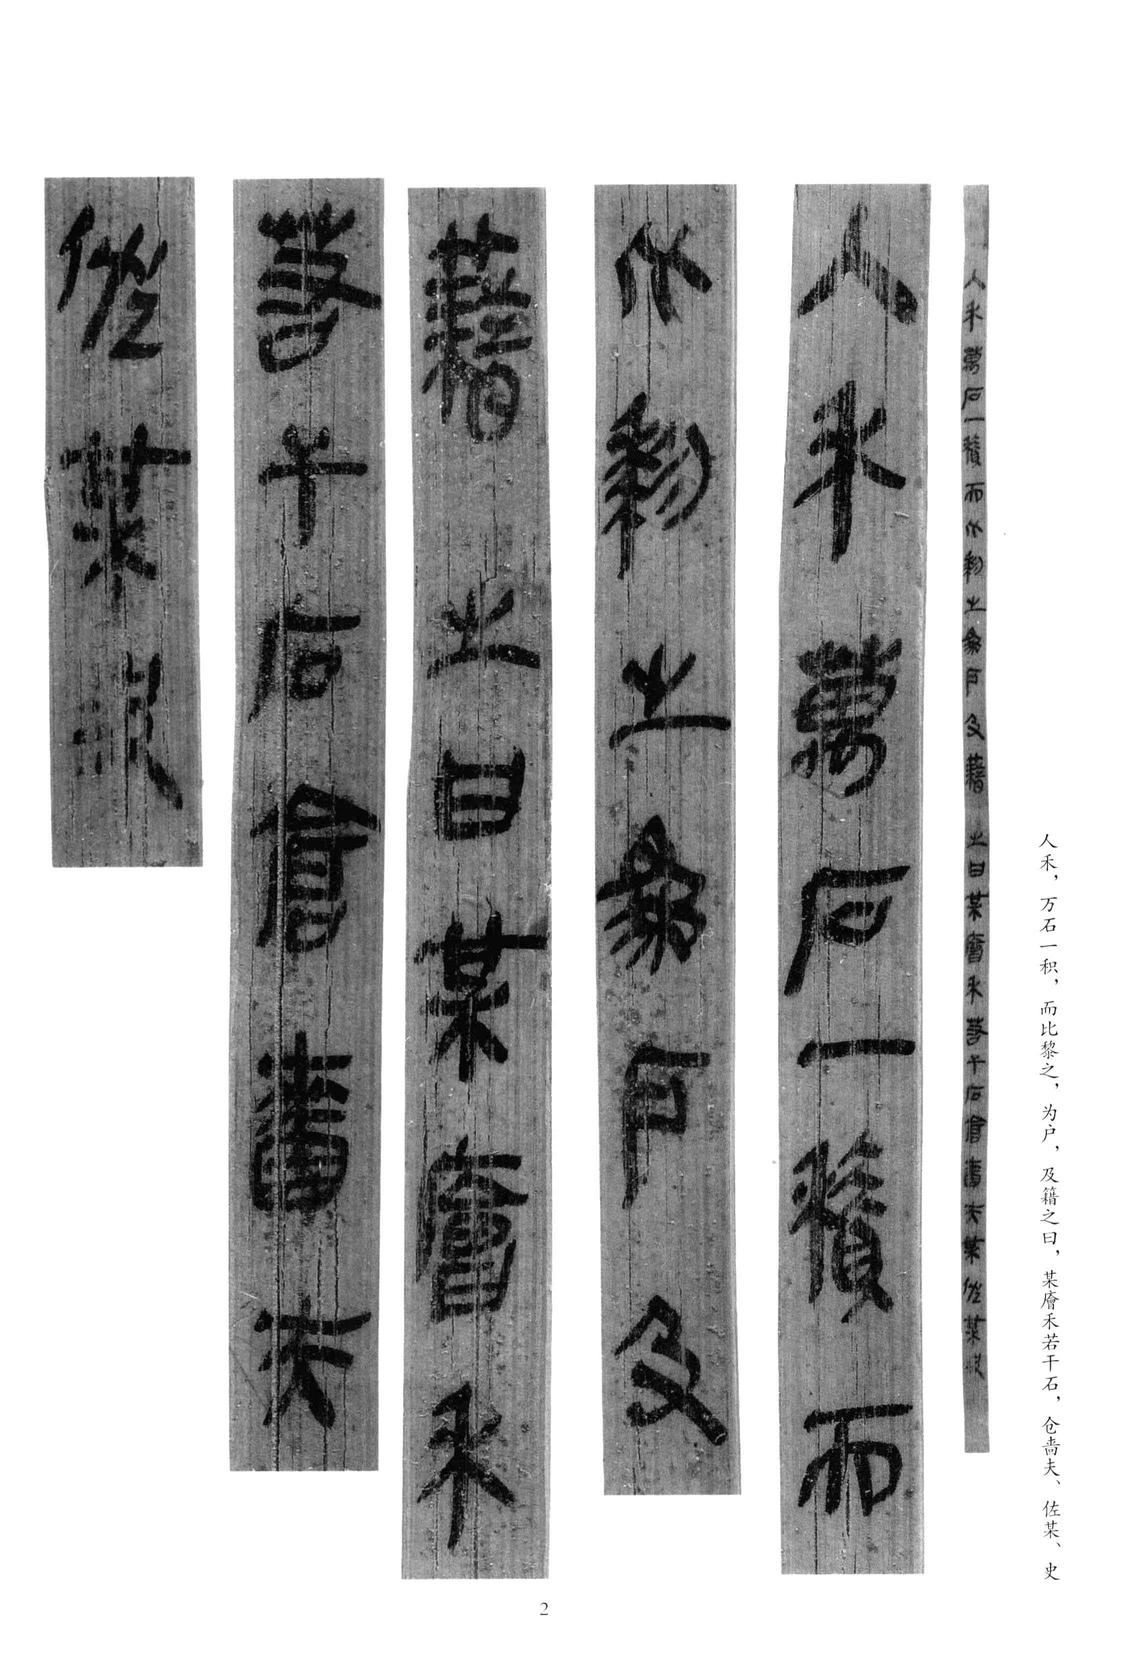 人禾，万石一积，而比黎之，为户，及籍之曰，某廥禾若干石，仓啬夫、佐某、史
人禾萬石一積而比黎之為戶及藉之曰某廥禾若干石倉嗇夫某佐某史
人禾萬石一積而
比黎之為戶及
藉之曰某廥禾
若干石倉嗇夫
佐某史
2